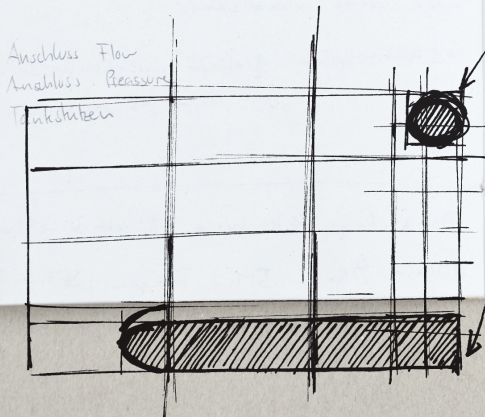 Anschluss Flow
Anschluss Preassure
Tankstutzen